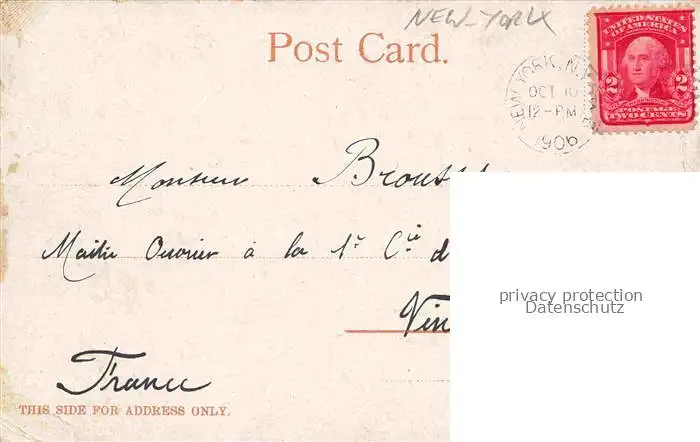 NEW-YORK
Post Card.
UNITED STATES OF AMERICA
NEW YORK, N.Y.
OCT 10
12-PM
1906
2 2
POSTAGE
TWO CENTS
Monsieur
Maître Ouvrier à la 1e Cie d
privacy protection
Datenschutz
France
THIS SIDE FOR ADDRESS ONLY.